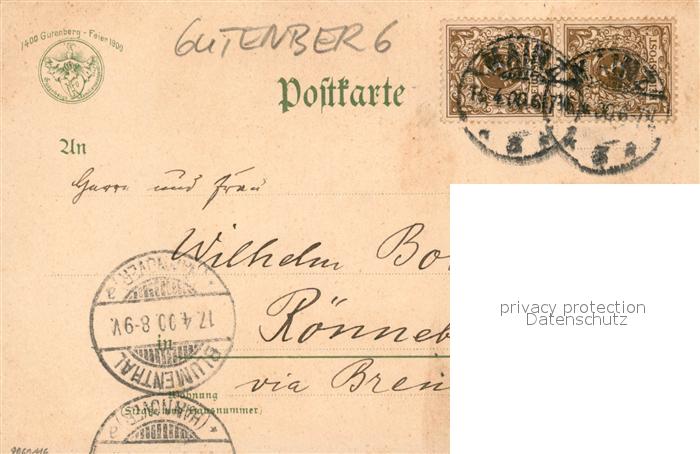 1400 Gutenberg-Feier 1900
GUTENBERG
Postkarte
MAINZ
16.4.00.6-7N
An
Herrn und Frau
Wilhelm Bo
Rönneb
in
via Brem
Wohnung
(Straße und Hausnummer)
(HANNOVER)
17.4.00.8-9V.
BLUMENTHAL
(HANNOVER)
privacy protection
Datenschutz